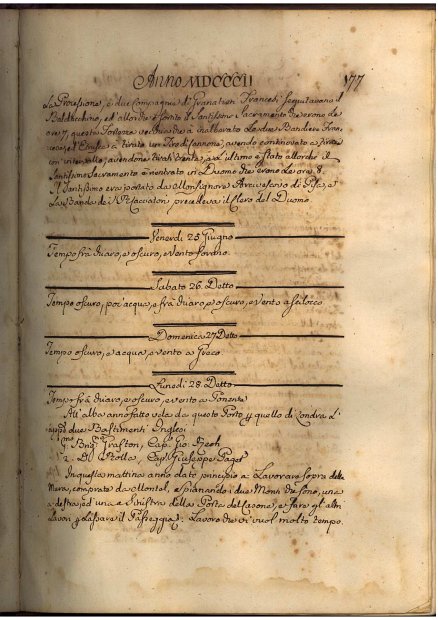 Anno MDCCCII 177
La Processione, e due Compagnie di Granatieri Francesi seguitavano il
Baldacchino, ed allorchè è sortito il Santissimo Sacramento che erano le
ore 7, questa Fortezza vecchia che a inalborato Le due Bandiere Fran-
cese, e l'Etrusca a tirato un tiro di cannone, avendo continovato a tirare
con intervallo, avendone tirati trenta, e l'ultimo è stato allorchè il
Santissimo Sacramento è rientrato in Duomo che erano Le ore 8.
Il Santissimo era portato da Monsignore Arcivescovo di Pisa, e
La Banda de i precedeva il Clero del Duomo.
Venerdì 25 Giugno
Tempo frà chiaro, e oscuro, e vento fovano.
Sabato 26. Detto
Tempo oscuro, poc'acqua, e frà chiaro, e oscuro, e vento a scilocco.
Domenica 27 Detto
Tempo oscuro, e acqua, e vento a Greco.
Lunedì 28. Detto
Tempo frà chiaro, e oscuro, e vento a Ponente
All'alba anno fatto vela da questo Porto p quello di Londra L'
due Bastimenti Inglesi
1mo Brigno Grafton, Capo Gio.
2. Di Capo Giuseppe Paget
In questa mattina anno dato principio a Lavorare sopra della
Mura, comprate da Montel, e spianando i due Monti che sono, uno
a destra, ed uno a sinistra della Porta del Casone, e fare gl'altri
Lavori p Lasiare il Passeggio: Lavoro che vi vuol molto tempo.